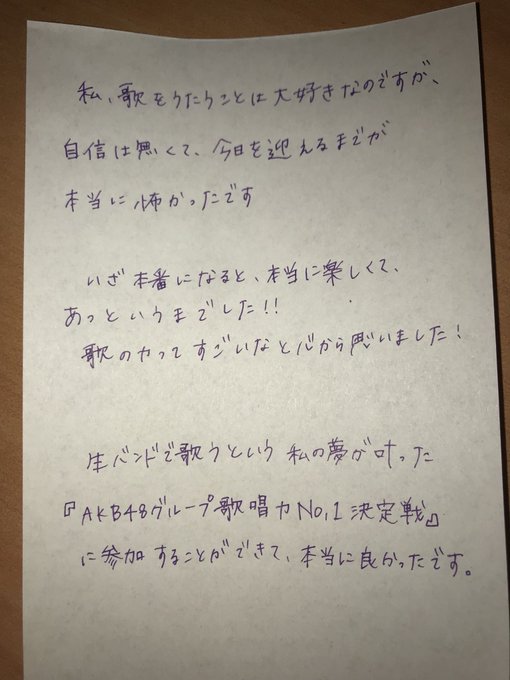 私、歌をうたうことは大好きなのですが、
自信は無くて、今日を迎えるまでが
本当に怖かったです
いざ本番になると、本当に楽しくて、
あっというまでした!!
歌の力ってすごいなと心から思いました!
生バンドで歌うという私の夢が叶った
『AKB48グループ歌唱力No,1決定戦』
に参加することができて、本当に良かったです。